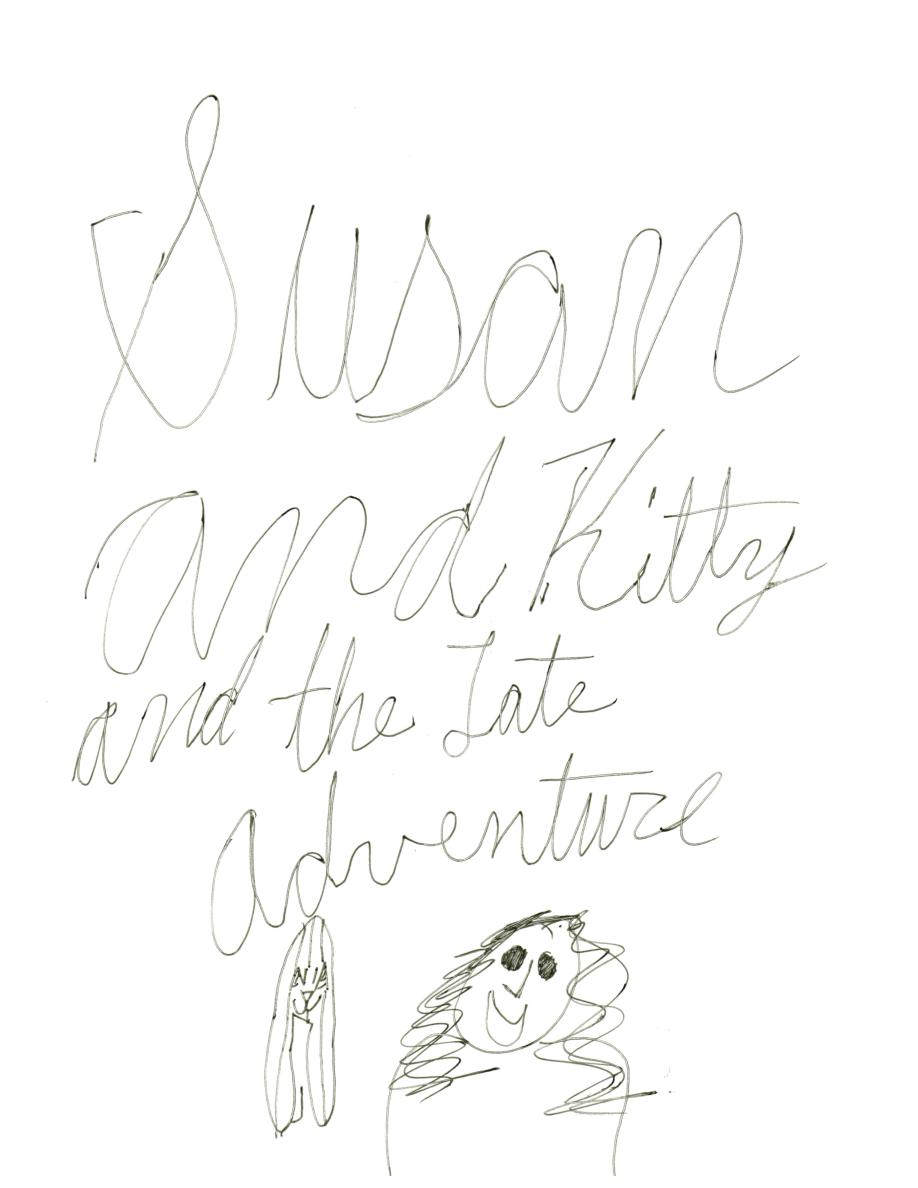 Susan
and Kitty
and the Late
adventure